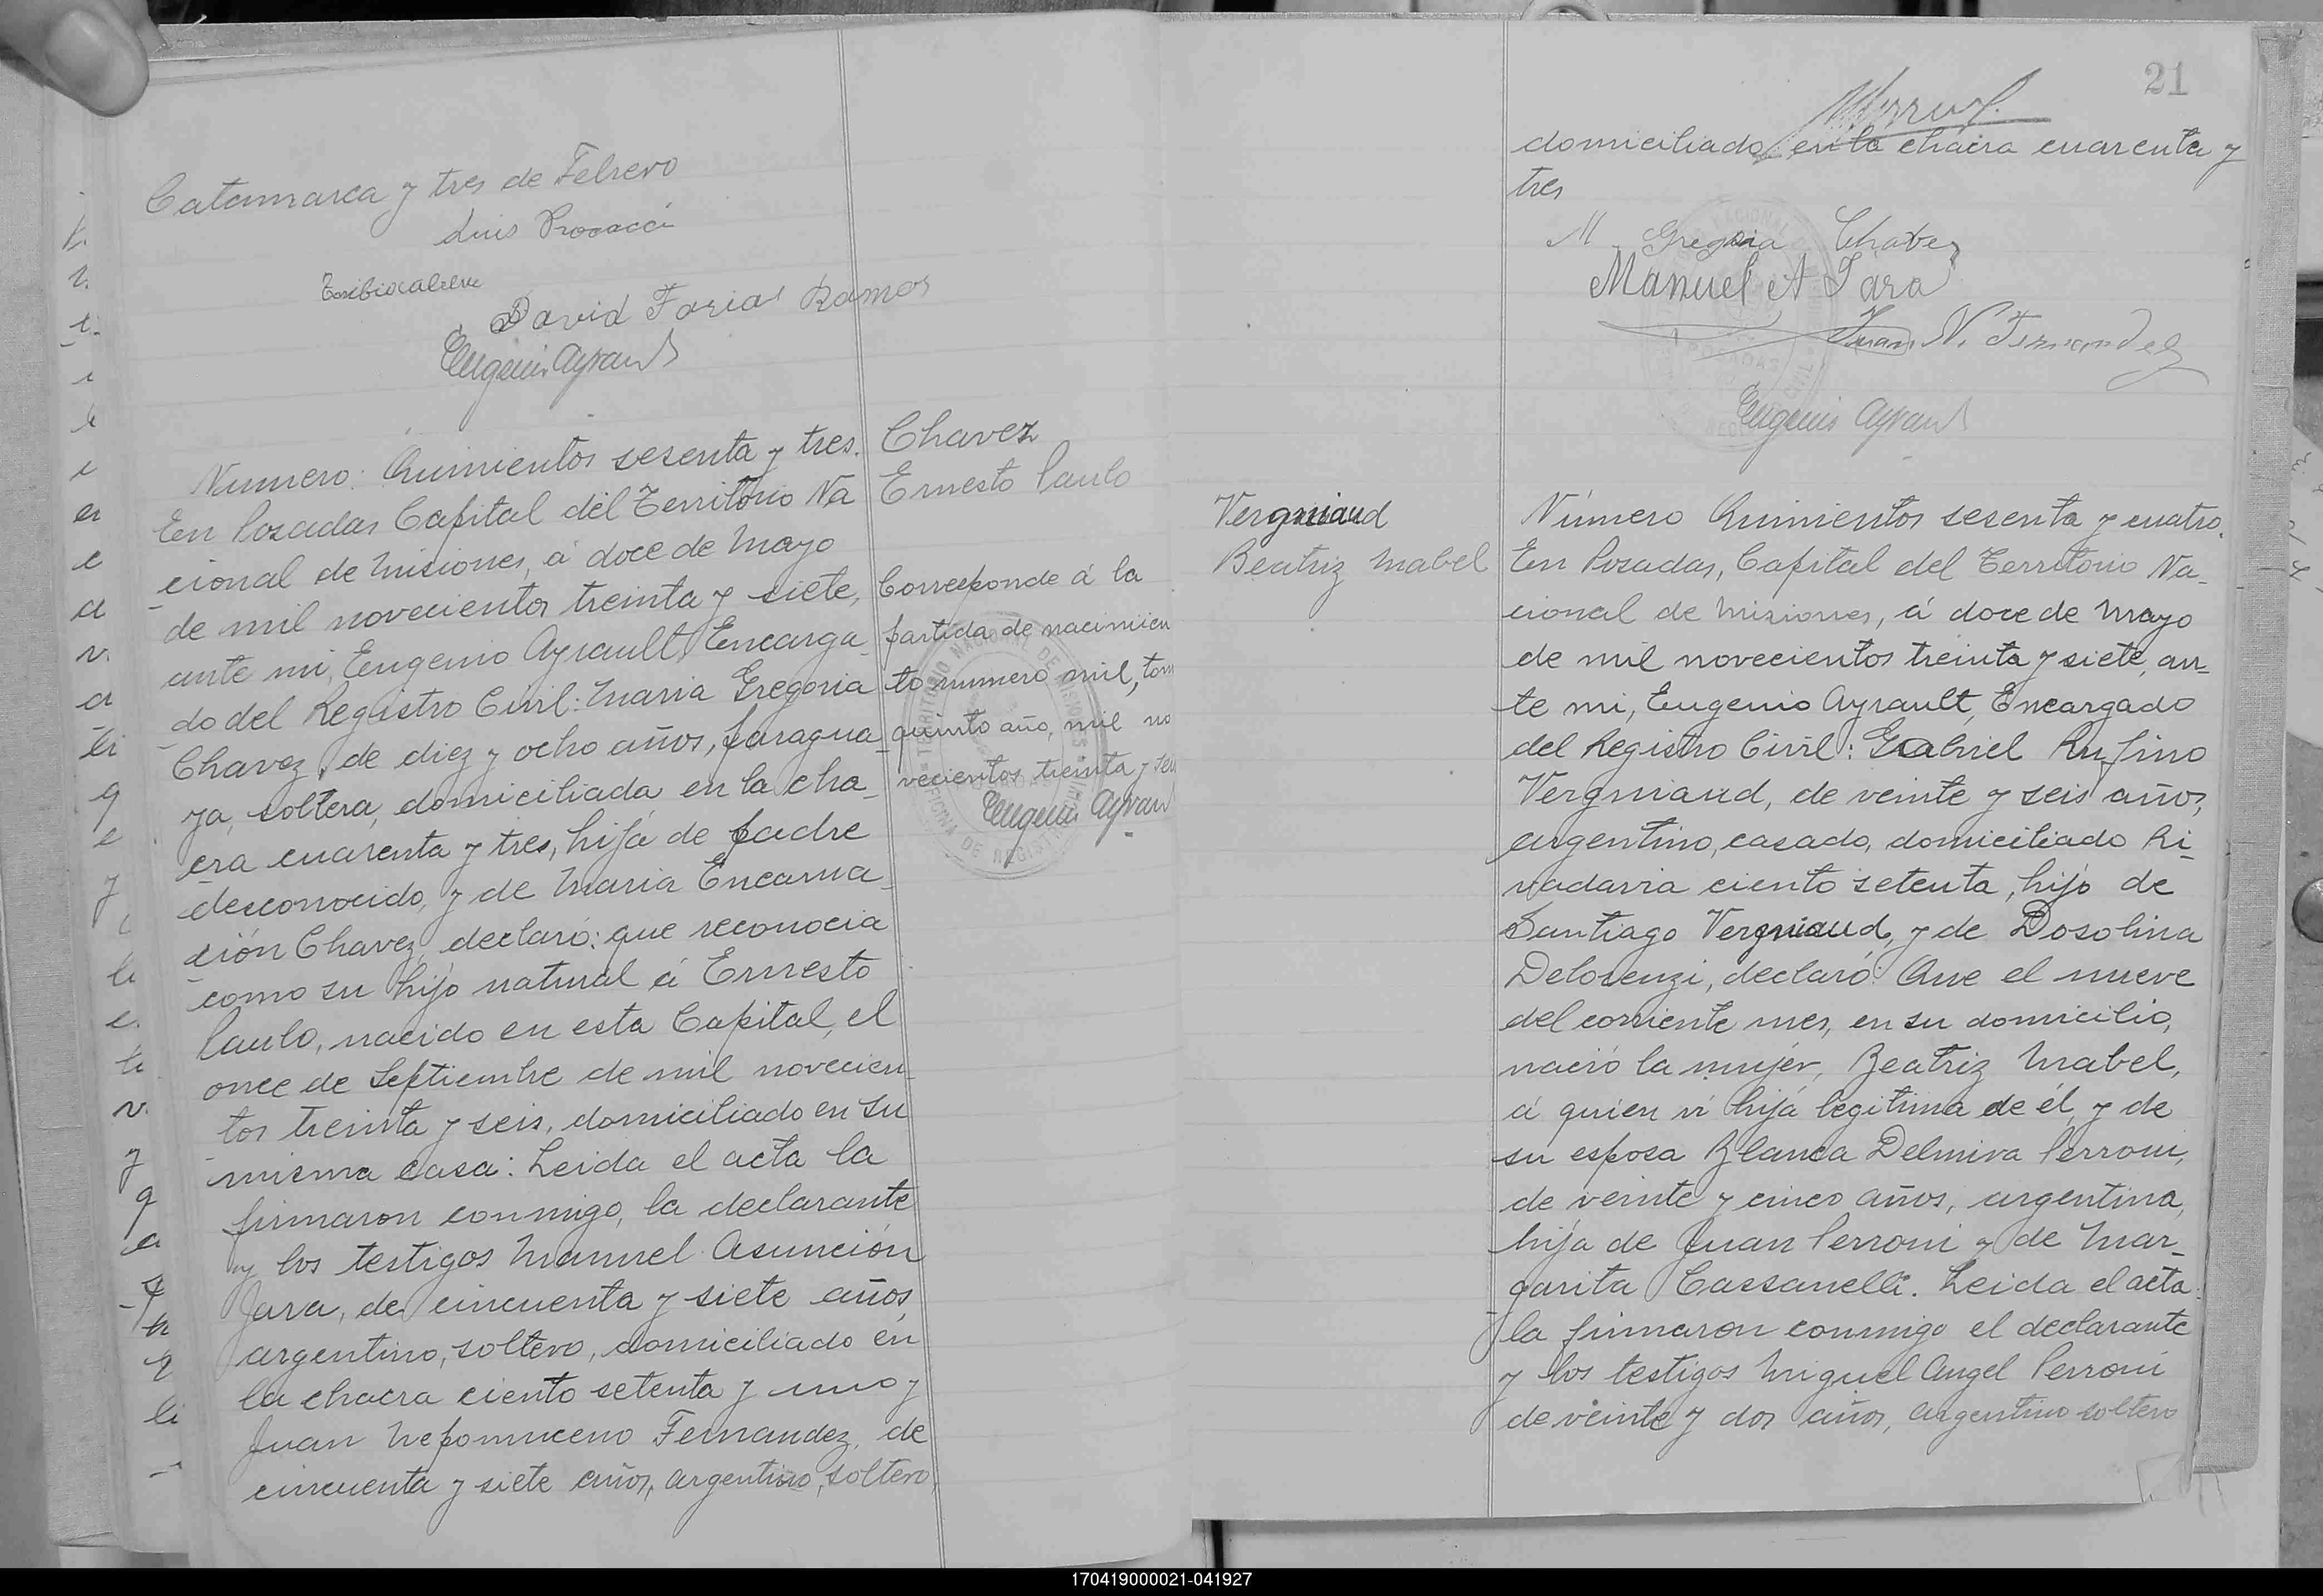 Catamarca y tres de Febrero
Luis Procacci
David Farias Ramos
Eugenio Ayrault
Chavez
Ernesto Paulo
Corresponde á la
partida de nacimien
to numero mil, tom
quinto año, mil no
vecientos treinta y seis
Eugenio Ayrault
Numero: Quinientos sesenta y tres.
En Posadas Capital del Territorio Na
cional de Misiones, á doce de Mayo
de mil novecientos treinta y siete,
ante mi, Eugenio Ayrault, Encarga
do del Registro Civil: Maria Gregoria
Chavez, de diez y ocho años, paragua
ya, soltera, domiciliada en la cha
cra cuarenta y tres, hija de padre
desconocido, y de Maria Encarna
ción Chavez, declaró: que reconocia
como su hijo natural á Ernesto
Paulo, nacido en esta Capital, el
once de Septiembre de mil novecien
tos treinta y seis, domiciliado en su
misma casa: Leida el acta la
firmaron conmigo, la declarante
y los testigos Manuel Asunción
Jara, de cincuenta y siete años
argentino, soltero, domiciliado en
la chacra ciento setenta y uno y
Juan Nepomuceno Fernandez, de
cincuenta y siete años, argentino, soltero,
21
domiciliado en la chacra cuarenta y
tres
M Gregoria Chavez
Manuel A Jara
Juan N. Fernandez
Eugenio Ayrault
Vergniaud
Beatriz Mabel
Número Quinientos sesenta y cuatro.
En Posadas, Capital del Territorio Na-
cional de Misiones, á doce de Mayo
de mil novecientos treinta y siete, an-
te mi, Eugenio Ayrault, Encargado
del Registro Civil: Gabriel Rufino
Vergniaud, de veinte y seis años,
argentino, casado, domiciliado Ri-
vadavia ciento setenta, hijo de
Santiago Vergniaud, y de Dosolina
Delorenzi, declaró: Que el nueve
del corriente mes, en su domicilio,
nació la mujer, Beatriz Mabel,
á quien ví hija legitima de él, y de
su esposa Blanca Delmira Perroni,
de veinte y cinco años, argentina,
hija de Juan Perroni y de Mar-
garita Cassanelli. Leida el acta
la firmaron conmigo el declarante
y los testigos Miguel Angel Perroni
de veinte y dos años, argentino soltero
170419000021-041927